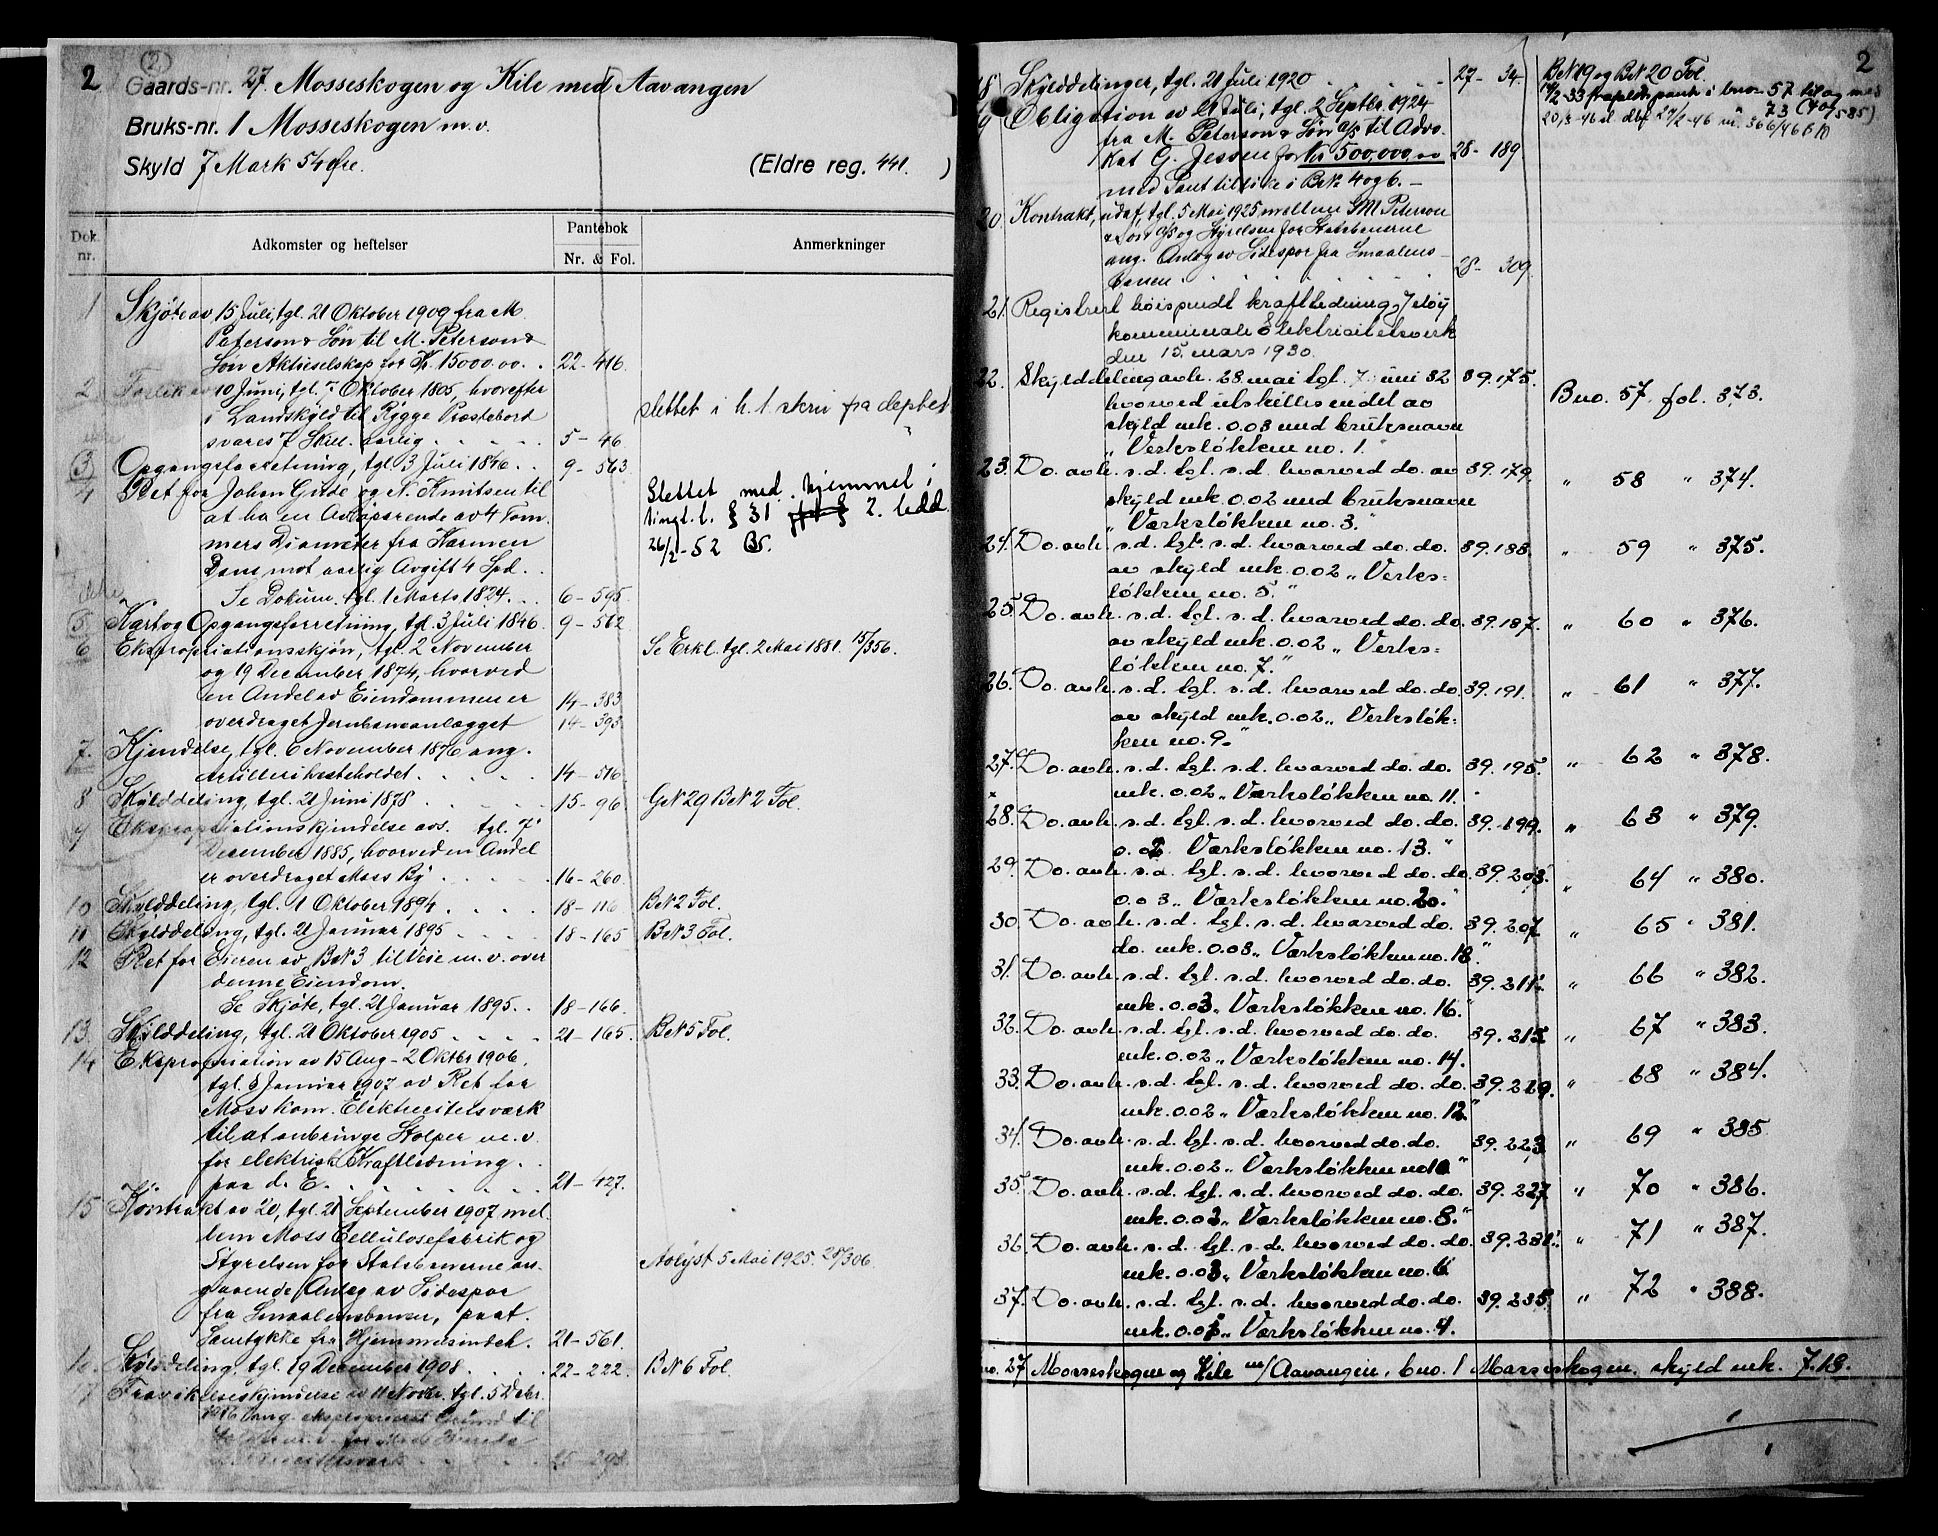 2
(2)
Gaards-nr. 27 Mosseskogen og Kile med Aavangen
Bruks-nr. 1 Mosseskogen m.v.
Skyld 7 Mark 54 Øre. (Eldre reg. 441. )
Dok. nr. Adkomster og heftelser Pantebok Nr. & Fol. Anmerkninger
1 Skjøte av 15 Juli, tgl. 21 Oktober 1909 fra M.
Peterson & Søn til M. Peterson &
Søn Aktieselskap for Kr. 15000.00. . 22-416.
2 Forlik av 10 Juni, tgl. 7 Oktober 1805, hvorefter
i Landskyld til Rygge Præstebord slettet i h. t. skriv fra deptet
svares 7 Skill. aarlig . . . . . 5-46.
3 Opgangsforretning, tgl. 3 Juli 1846. . 9-563.
4 Ret for Johan Gude og N. Knutsen til Slettet med hjemmel i
at ha en Avløpsrende av 4 Tom- tingl. l. § 31 2. ledd
mers Diameter fra Kærnen 26/2-52
Dam mot aarlig Avgift 4 Spd. .
Se Dokum. tgl. 1 Marts 1824. . . 6-595.
5 Kart og Opgangsforretning, tgl. 3 Juli 1846. 9-562
6 Ekspropriationsskjøn, tgl. 2 November Se Erkl. tgl. 2 Mai 1881. 15/356.
og 19 December 1874, hvorved
en Andel av Eiendommen er 14-383
overdraget Jernbaneanlægget 14-393
7. Kjendelse, tgl. 6 November 1876 ang.
Artillerihesteholdet . . . . . 14-516.
8 Skylddeling, tgl. 21 Juni 1878 . . . . 15-96. GN 29 BN 2 Fol.
9 Ekspropriationskjendelse avs. tgl. 7
December 1885, hvorved en Andel
er overdraget Moss By . . . . . 16-260.
10 Skylddeling, tgl. 1 Oktober 1894 . . . . 18-116 BN 2 Fol.
11 Skylddeling, tgl. 21 Januar 1895 . . . . 18-165 BN 3 Fol.
12 Ret for Eieren av BN 3 til Veie m.v. over
denne Eiendom.
Se Skjøte, tgl. 21 Januar 1895. . 18-166.
13. Skylddeling, tgl. 21 Oktober 1905 . . . . 21-165. BN 5 Fol.
14 Ekspropriation av 15 Aug - 2 Oktbr 1906,
tgl. 8 Januar 1907 av Ret for
Moss kom. Elektricitetsværk
til at anbringe Stolper m.v.
for elektrisk Kraftledning
paa d. E. . . . . . . . . 21-427.
15 Kontrakt av 20, tgl. 21 September 1907 mel-
lem Moss Cellulosefabrik og
Styrelsen for Statsbanerne an- Avlyst 5 Mai 1925. 28/306.
gaaende Anlæg av Sidespor
fra Smaalensbanen, paat.
Samtykke fra Hjemmelsindeh. . 21-561.
16. Skylddeling, tgl. 19 December 1908 . . . . 22-222. BN 6 Fol.
17 Fravikelseskjendelse av 11 Novbr. tgl. 5 Debr.
ang. eksproprieret Grund til
25-293.
2
18 Skylddelinger, tgl. 21 Juli 1920 . . . . . 27-34. BN 19 og BN 20 Fol.
19 Obligation av 21 Juli, tgl. 2 Septbr. 1924
fra M. Peterson & Søn a/s til Advo-
kat G. Jessen for Kr 500,000,00 28-189
med Pant tillike i BN: 4 og 6. -
20 Kontrakt, udaf., tgl. 5 Mai 1925 mellem M Peterson
& Søn a/s og Styrelsen for Statsbanerne
ang. Anlæg av Sidespor fra Smaalens-
banen . . . . . . . . 28-309.
21. Registrert høispendt kraftledning, Jeløy
kommunale Elektricitetsverk
den 15. mars 1930.
22. Skylddeling avh. 28. mai tgl. 7. juni 32 39.175. Bno. 57 fol. 373.
hvorved utskilles en del av
skyld mk. 0.03 med bruksnavn
„Verksløkken no. 1."
23. Do. avh. s.d. tgl. s.d. hvorved do. av 39.179. „ 58 „ 374.
skyld mk. 0.02 med bruksnavn
„Værksløkken no. 3."
24. Do. avh. s.d. tgl. s.d. hvorved do. do. 39.183. „ 59 „ 375.
av skyld mk. 0.02 „Verks=
løkken no. 5."
25. Do. avh. s.d. tgl. s.d. hvorved do. do. 39.187. „ 60 „ 376.
av skyld mk. 0.02 „Verks=
løkken no. 7."
26. Do. avh. s.d. tgl. s.d. hvorved do. do. 39.191. „ 61 „ 377.
av skyld mk. 0.02 „Verksløk=
ken no. 9."
27. Do. avh. s.d. tgl. s.d. hvorved do. do. 39.195. „ 62 „ 378.
mk. 0.02 „Værksløkken no. 11."
28. Do. avh. s.d. tgl. s.d. hvorved do. do. 39.199. „ 63 „ 379.
0.02 Værksløkken no. 13."
29. Do. avh. s.d. tgl. s.d. hvorved do. do. 39.203. „ 64 „ 380.
0.03 „Værksløkken no. 20."
30. Do. avh. s.d. tgl. s.d. hvorved do. 39.207 „ 65 „ 381.
do. mk. 0.03 „Værksløkken no. 18."
31. Do. avh. s.d. tgl. s.d. hvorved do. do. 39.211. „ 66 „ 382.
mk. 0.03 „Værksløkken no. 16."
32. Do. avh. s.d. tgl. s.d. hvorved do. do. 39.215 „ 67 „ 383.
mk. 0.02 „Værksløkken no. 14.
33. Do. avh. s.d. tgl. s.d. hvorved do. do. 39.219. „ 68 „ 384.
mk. 0.02 „Værksløkken no. 12."
34. Do. avh. s.d. tgl. s.d. hvorved do. do. 39.223 „ 69 „ 385
mk. 0.02 „Værksløkken no 10"
35. Do. avh. s.d. tgl. s.d. hvorved do. do. 39.227 „ 70 „ 386.
mk. 0.03 „Værksløkken no. 8."
36. Do. avh. s.d. tgl. s.d. hvorved do. do. 39.231. „ 71 „ 387.
mk. 0.03 „Værksløkken no. 6
37. Do. avh. s.d. tgl. s.d. hvorved do. do. 39.235. „ 72 „ 388.
mk. „Værksløkken no. 4.
no. 27 Mosseskogen og Kile m/Aavangen, bno. 1 Mosseskogen. skyld mk. 7.13.